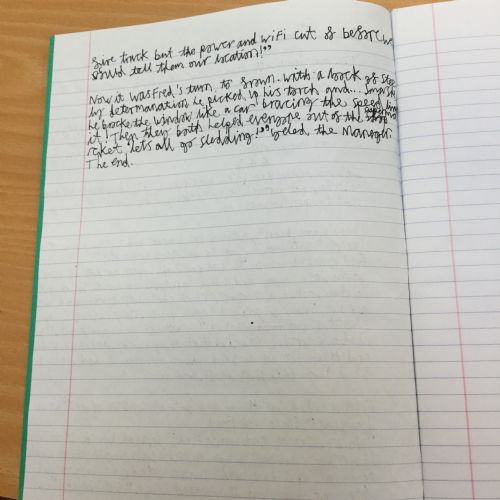 fire truck but the power and wifi cut of before we
could tell them our location!"
Now it was Fred's turn to frown. with a look of
by determanation he picked up his torch and...
he brocke the window like a car bracing the speed
it! Then they both helped everyone out of the
rcket "lets all go sledding!" yeled the Manager.
The end.